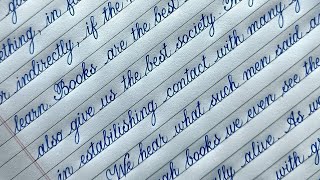 good, in fa
ething, in f
or indirectly, if the m
learn. Books are the best society. Th
also give us the best
in estabilishing contact with many
We hear what such men said an
ugh books we even see the
ally alive. As w
with g